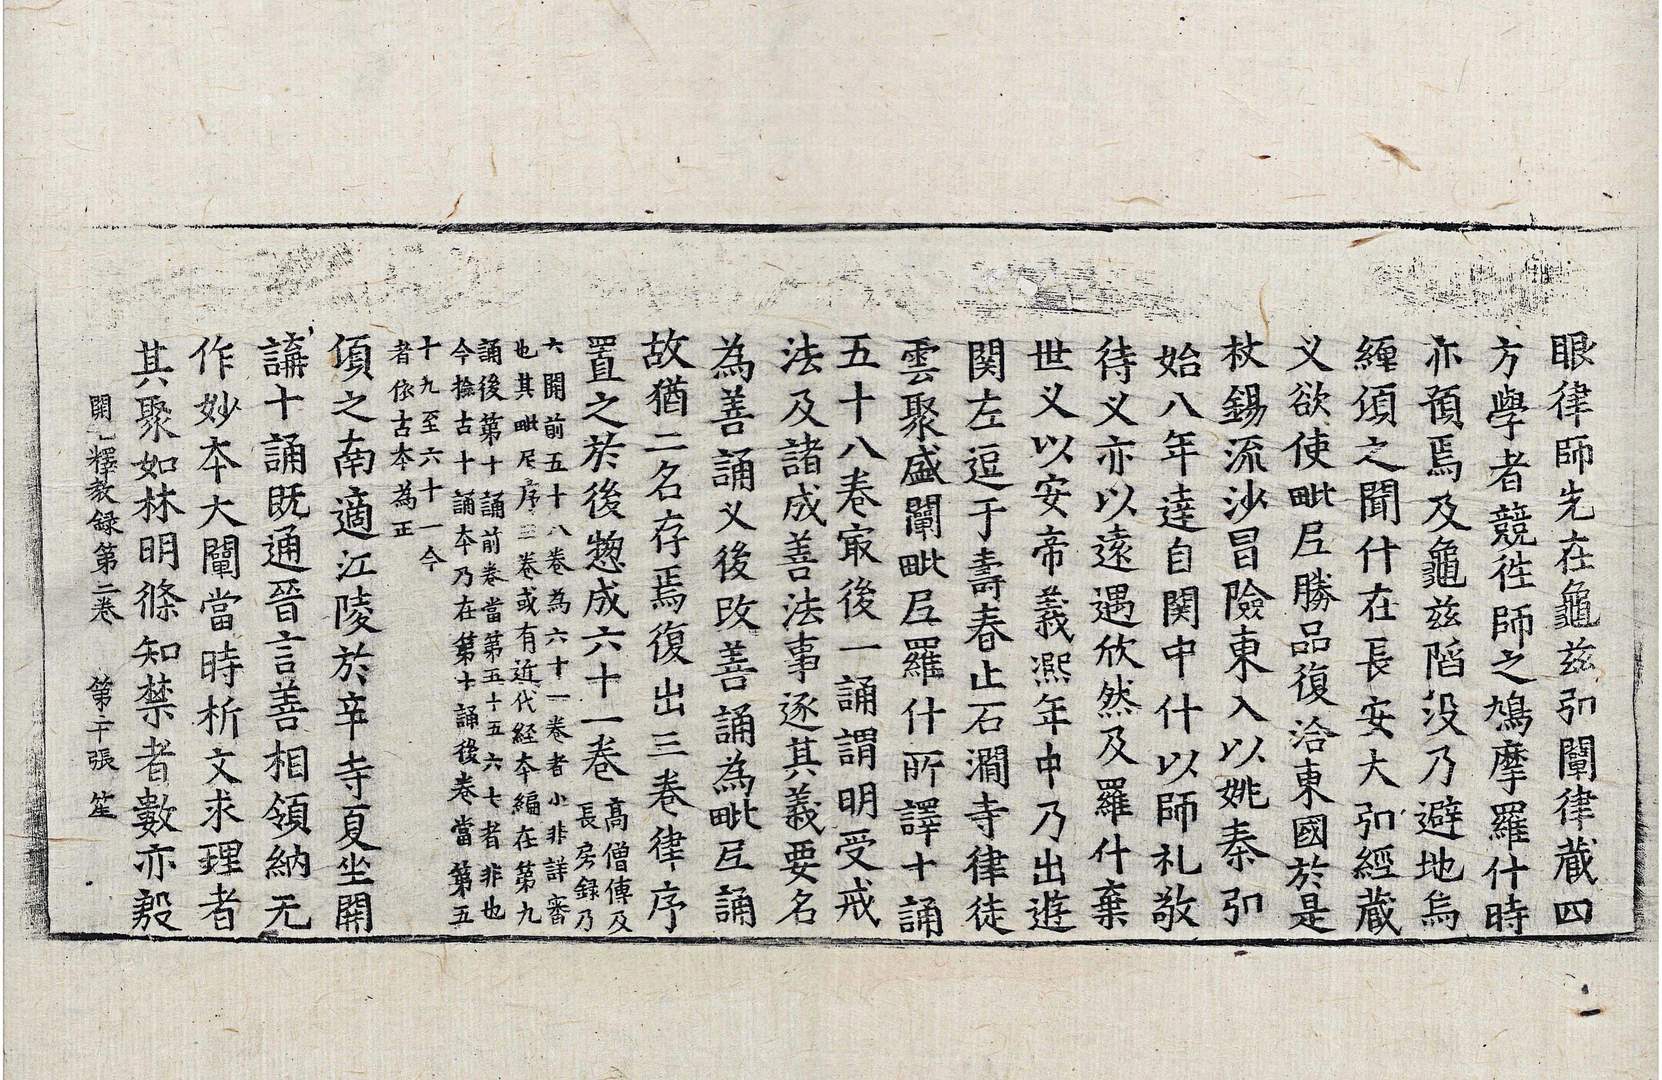 眼律師先在龜茲弘闡律藏四
方學者競徃師之鳩摩羅什時
亦預焉及龜茲䧟没乃避地烏
纏湏之聞什在長安大弘經藏
义欲使毗𡰱勝品復洽東國於是
杖錫流沙冒險東入以姚秦弘
始八年達自関中什以師礼敬
待义亦以遠遇欣然及羅什棄
世义以安帝義熈年中中乃出遊
関左逗于壽春止石澗寺律徒
雲聚盛闡毗𡰱羅什所譯十誦
五十八卷㝡後一誦謂明受戒
法及諸成善法事逐其義要名
為善誦义後改善誦為毗𡰱誦
故猶二名存焉復出三卷律序
置之於後惣成六十一卷
高僧傳及
長房錄乃
六開前五十八卷為六十一卷者小非詳審
也其毗尼序三卷或有近代經夲編在第九
誦後第十誦前卷當第五十五六七者非也
今撿古十誦夲乃在第十誦後卷當第五
十九至六十一今
者依古夲為正
湏之南適江陵於辛寺夏坐開
講十誦既通晉言善相領納无
作妙夲大闡當時析文求理者
其聚如林明條知禁者數亦殷
開元釋教録第二卷　第二十張　笙